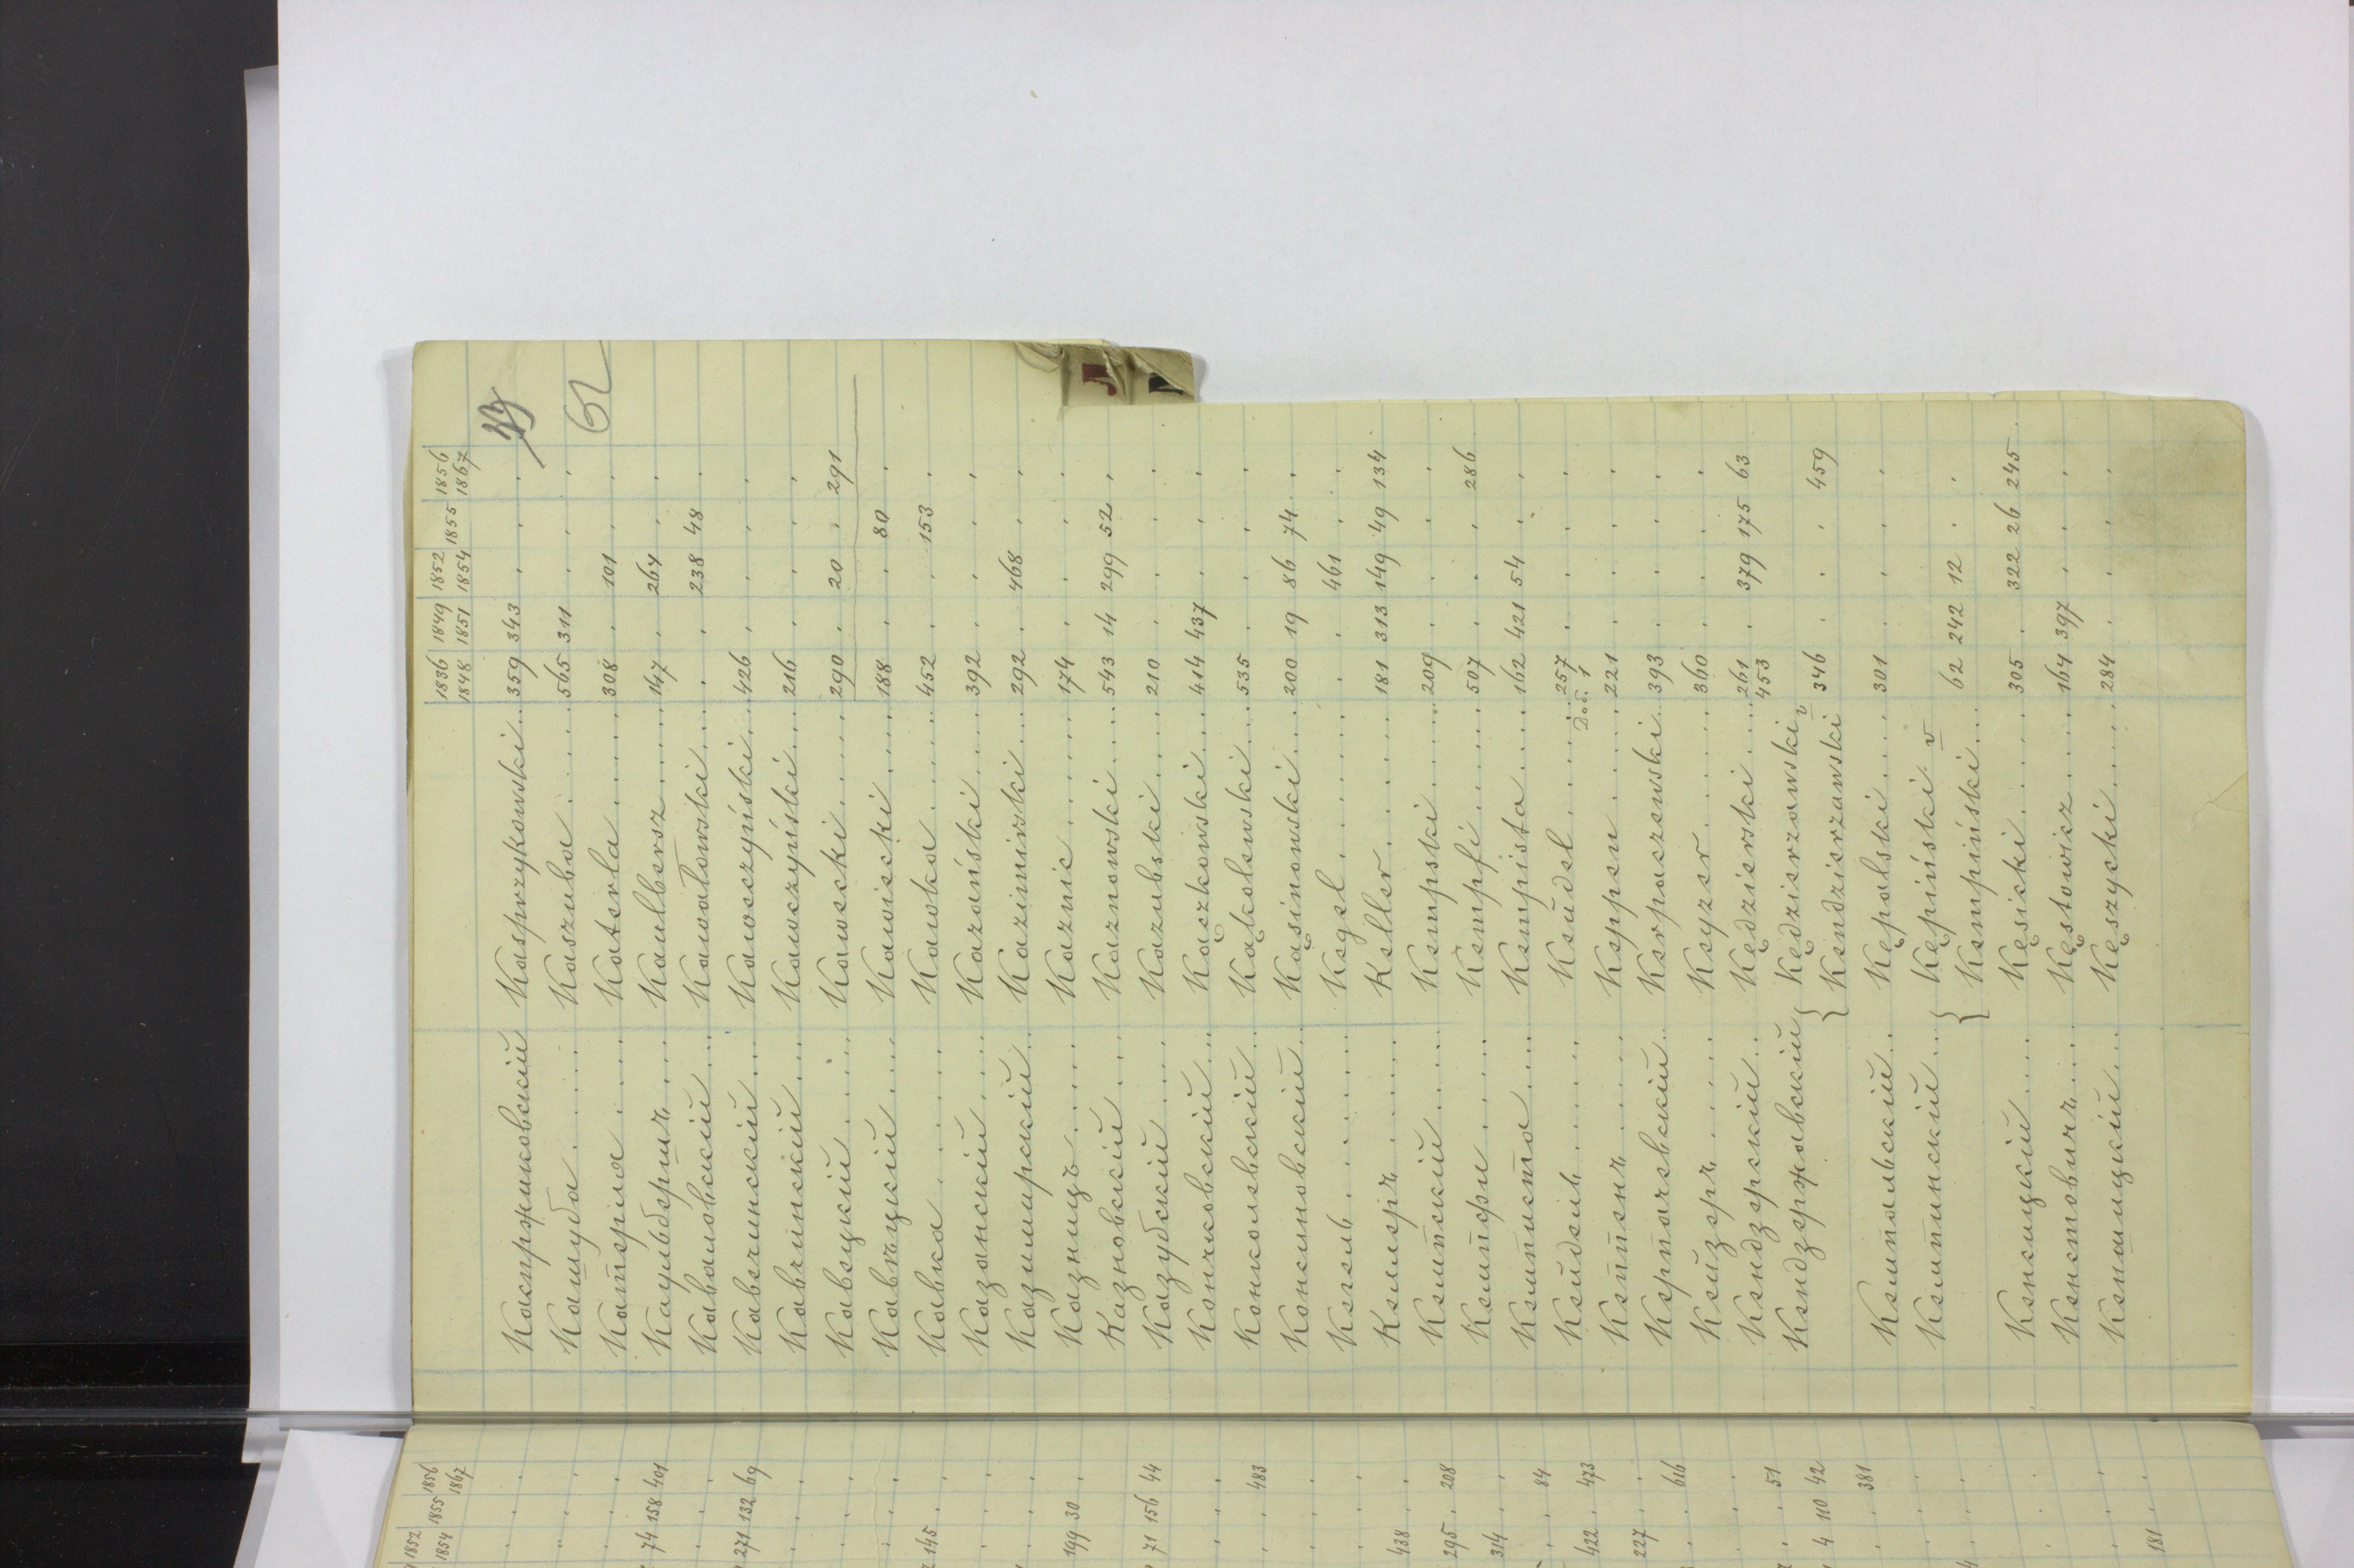 1836 1849 1852 1855 1856
1848 1851 1854 1867
62
Каспржиковскій Kasprzykowski... 359 343 . . .
Кашуба...... Kaszuba...... 565 311 . . .
Катерля..... Katerla...... 308 . 101 . .
Каульбершъ.... Kaulbersz.... 147 . 264 . .
Каваловскій... Kawałowski... . . 238 48 .
Кавечинскій... Kawieczyński... 426 . . . .
Кавчинскій.... Kawczyński... 216 . . . .
Кавецкій..... Kawecki..... 290 . 20 . 291
Кавѣцкій..... Kawiecki.... 188 . . 80 .
Кавка...... Kawka...... 452 . . 153 .
Казанскій.... Kazański.... 392 . . . .
Казимирскій.. Kazimirski... 292 . 468 . .
Казницъ..... Kaznic...... 174 . . . .
Казновскій... Kaznowski.... 543 14 299 52 .
Казубскій.... Kazubski.... 210 . . . .
Кончковскій... Kączkowski... 414 437 . . .
Конколевскій.. Kąkolewski... 535 . . . .
Консиновскій.. Kąsinowski... 200 19 86 74 .
Кегель...... Kegel...... . . 461 . .
Келлеръ..... Keller...... 181 313 149 49 134
Кемпскій..... Kempski..... 209 . . . .
Кемпфи..... Kempfi...... 507 . . . 286
Кемписта.... Kempista.... 162 421 54 . .
Кейдель..... Keudel...... 257 . . . .
Доп. 1
Кеппенъ..... Keppen..... 221 . . . .
Керпачевскій.. Kerpaczewski.. 393 . . . .
Кейзеръ..... Keyzer...... 360 . . . .
Кендзерскій... Kędzierski.... 261 . 379 175 63
453
Кендзержавскій { Kędzierzawski v
Kendzierzawski 346 . . . 459
Кемпальскій... Kępalski..... 301 . . . .
Кемпинскій... { Kępiński v
Kempiński... 62 242 12 . .
Кенсицкій.... Kęsicki..... 305 . 322 26 245
Кенстовичъ... Kęstowicz.... 164 397 . . .
Кеншицкій... Kęszycki..... 284 . . . .
1852 1855 1856
1854 1867
74 158 401
271 132 69
145
199 30
71 156 44
483
438
295 . 208
314
84
422 . 473
227
616
51
4 110 42
381
181